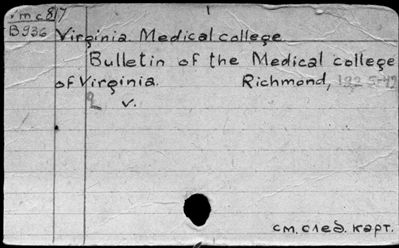 B936 Virginia. Medical college.
Bulletin of the Medical college
of Virginia. Richmond,
v.
см. след. карт.